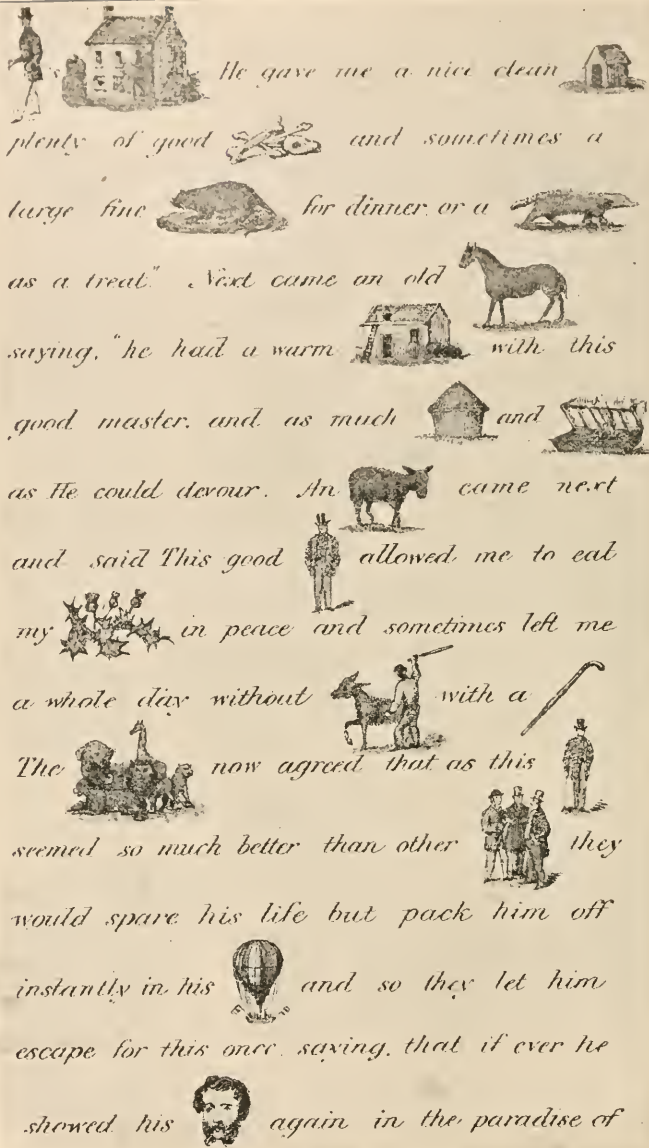 's He gave me a nice clean
plenty of good and sometimes a
large fine for dinner or a
as a treat." Next came an old
saying, "he had a warm with this
good master. and as much and
as He could devour. An came next
and said This good allowed me to eat
my in peace and sometimes left me
a whole day without with a
The now agreed that as this
seemed so much better than other they
would spare his life but pack him off
instantly in his and so they let him
escape for this once saying, that if ever he
showed his again in the paradise of